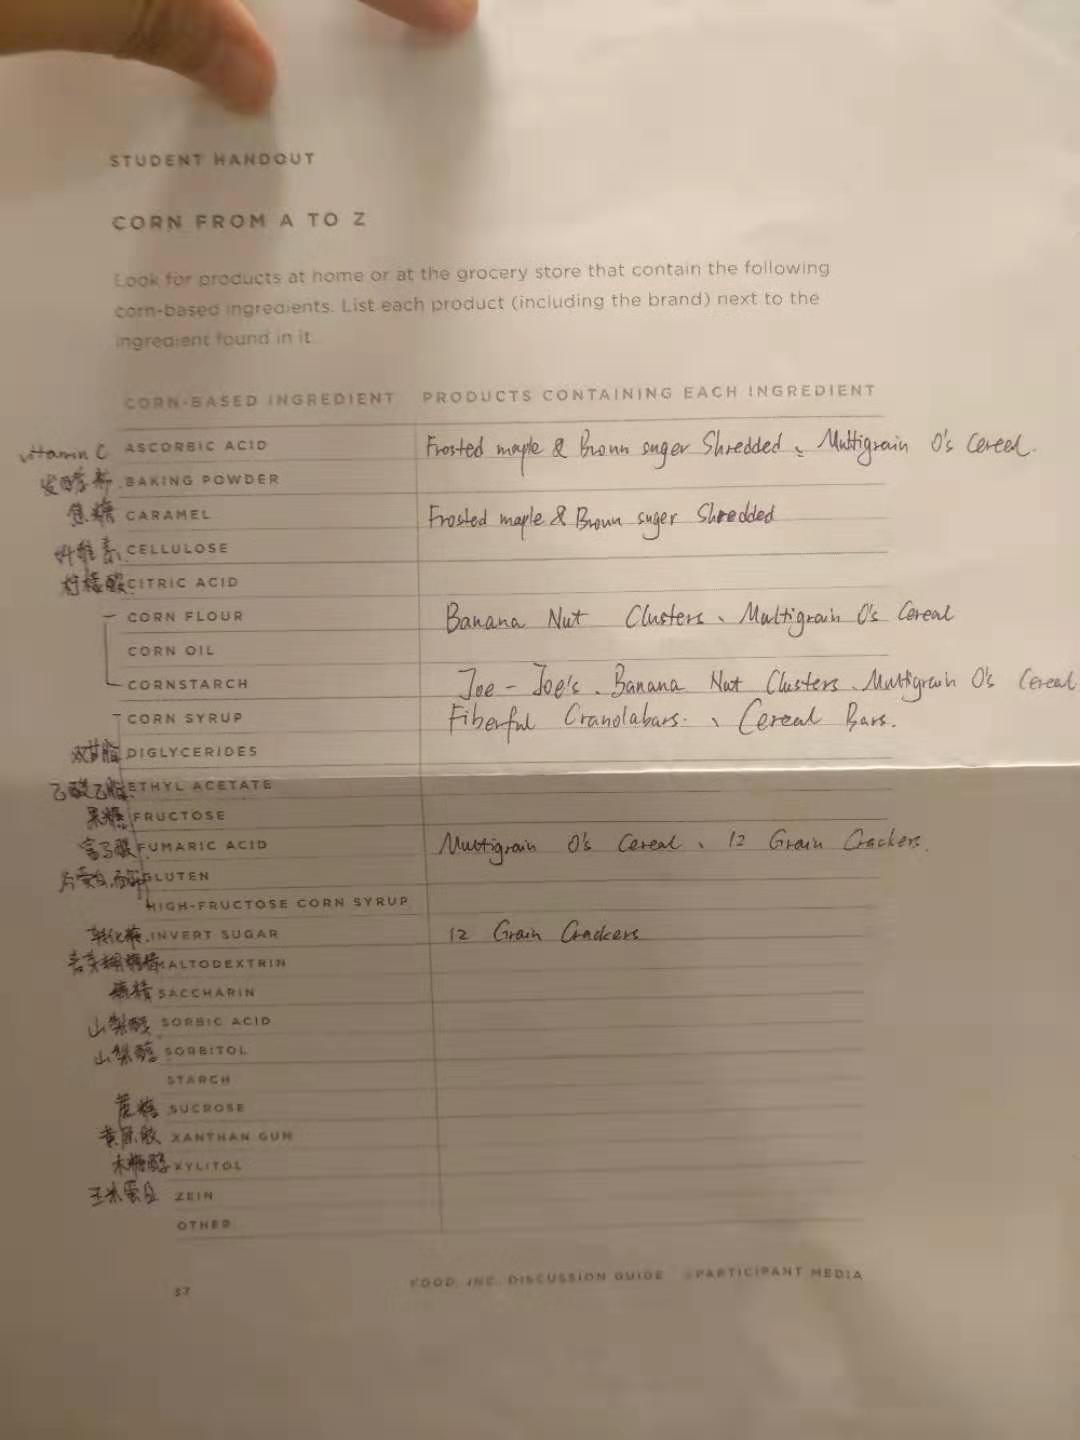 STUDENT HANDOUT
CORN FROM A TO Z
Look for products at home or at the grocery store that contain the following
corn-based ingredients. List each product (including the brand) next to the
ingredient found in it.
CORN-BASED INGREDIENT PRODUCTS CONTAINING EACH INGREDIENT
vitamin C ASCORBIC ACID Frosted maple & Broun suger Shredded、Multigrain O's Cereal.
发酵粉 BAKING POWDER
焦糖 CARAMEL Frosted maple & Broun suger Shredded
纤维素 CELLULOSE
柠檬酸 CITRIC ACID
CORN FLOUR Banana Nut Clusters、Multigrain O's Cereal
CORN OIL
CORNSTARCH Joe-Joe's、Banana Nut Clusters、Multigrain O's Cereal
CORN SYRUP Fiberful Granolabars、Cereal Bars.
双甘脂 DIGLYCERIDES
乙酸乙脂 ETHYL ACETATE
果糖 FRUCTOSE
富马酸 FUMARIC ACID Multigrain O's Cereal、12 Grain Crackers.
GLUTEN
HIGH-FRUCTOSE CORN SYRUP
转化糖 INVERT SUGAR 12 Grain Crackers
麦芽糊精 MALTODEXTRIN
糖精 SACCHARIN
山梨酸 SORBIC ACID
山梨醇 SORBITOL
STARCH
蔗糖 SUCROSE
黄原胶 XANTHAN GUM
木糖醇 XYLITOL
玉米蛋白 ZEIN
OTHER
37 FOOD, INC. DISCUSSION GUIDE ©PARTICIPANT MEDIA